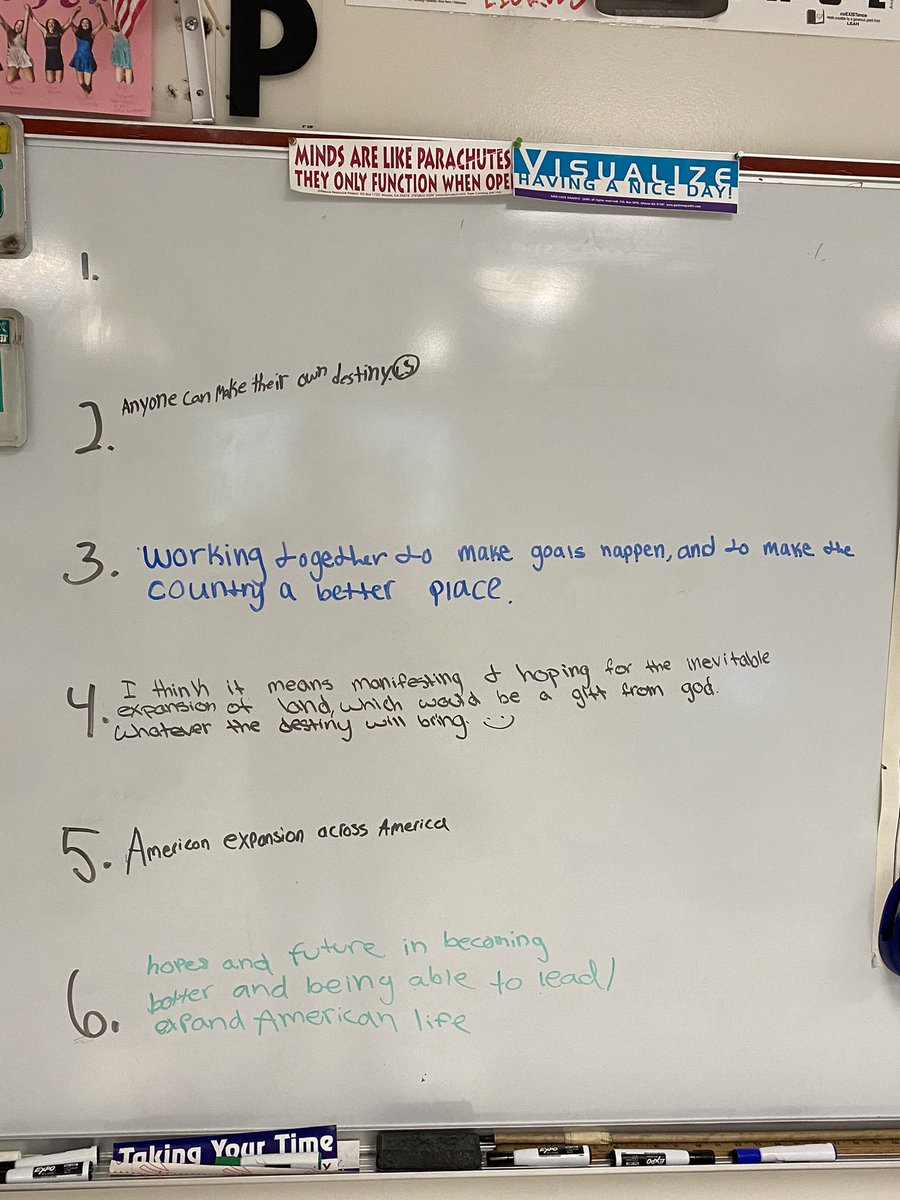 P
coEXISTence
LEAH
MINDS ARE LIKE PARACHUTES
THEY ONLY FUNCTION WHEN OPE
VISUALIZE
HAVING A NICE DAY!
1.
2. Anyone can make their own destiny.
3. Working together to make goals happen, and to make the
country a better place.
4. I think it means manifesting & hoping for the inevitable
expansion of land, which would be a gift from god.
Whatever the destiny will bring. :)
5. American expansion across America
6. hopes and future in becoming
better and being able to lead/
expand American life
Taking Your Time
EXPO
EXPO